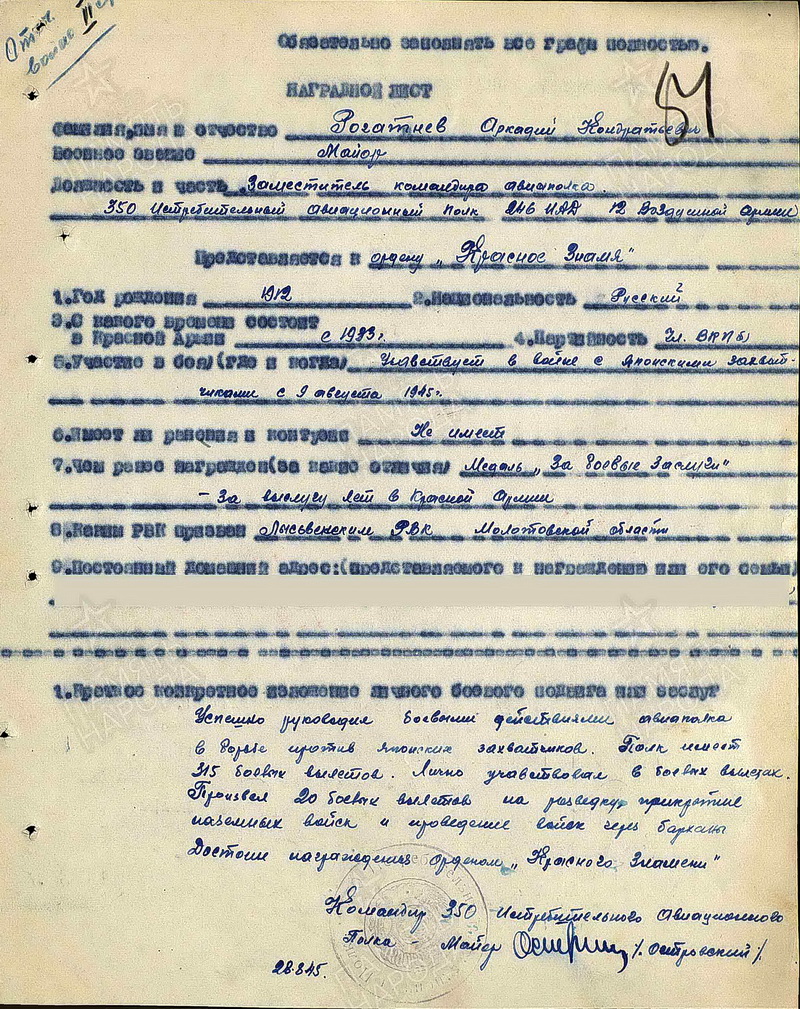 Отеч.
войны II ст
Обязательно заполнять все графи полностью.
НАГРАДНОЙ ЛИСТ
51
Фамилия,имя и отчество Рогатнев Аркадий Кондратьевич
Военное звание Майор
Должность и часть Заместитель командира авиаполка.
350 Истребительный Авиационный Полк 246 ИАД 12 Воздушной Армии
Представляется к ордену „Красное Знамя"
1.Год рождения 1912 2.Национальность Русский
3.С какого времени состоит
в Красной Армии с 1933г. 4.Партийность Чл. ВКПб)
5.Участие в боях(где и когда/ Учавствует в войне с Японскими захват-
чиками с 9 августа 1945г.
6.Имеет ли ранения и контузии Не имеет
7.Чем ранее награжден(за какие отличия/ Медаль „За боевые Заслуги"
- За выслугу лет в Красной Армии
8.Каким РВК призван Лысьвенским РВК Молотовской области
9.Постоянный домашний адрес:(представляемого к награждению или его семьи/
1.Краткое конкретное изложение личного боевого подвига или заслуг
Успешно руководил боевыми действиями авиаполка
в борьбе против Японских захватчиков. Полк имеет
315 боевых вылетов. Лично учавствовал в боевых вылетах.
Произвел 20 боевых вылетов на разведку, прикрытие
наземных войск и проведение войск через барханы
Достоин награждения Орденом „Красного Знамени"
Командир 350 Истребительного Авиационного
Полка - Майор /. Островский /.
28.8.45.
ПАМЯТЬ
НАРОДА